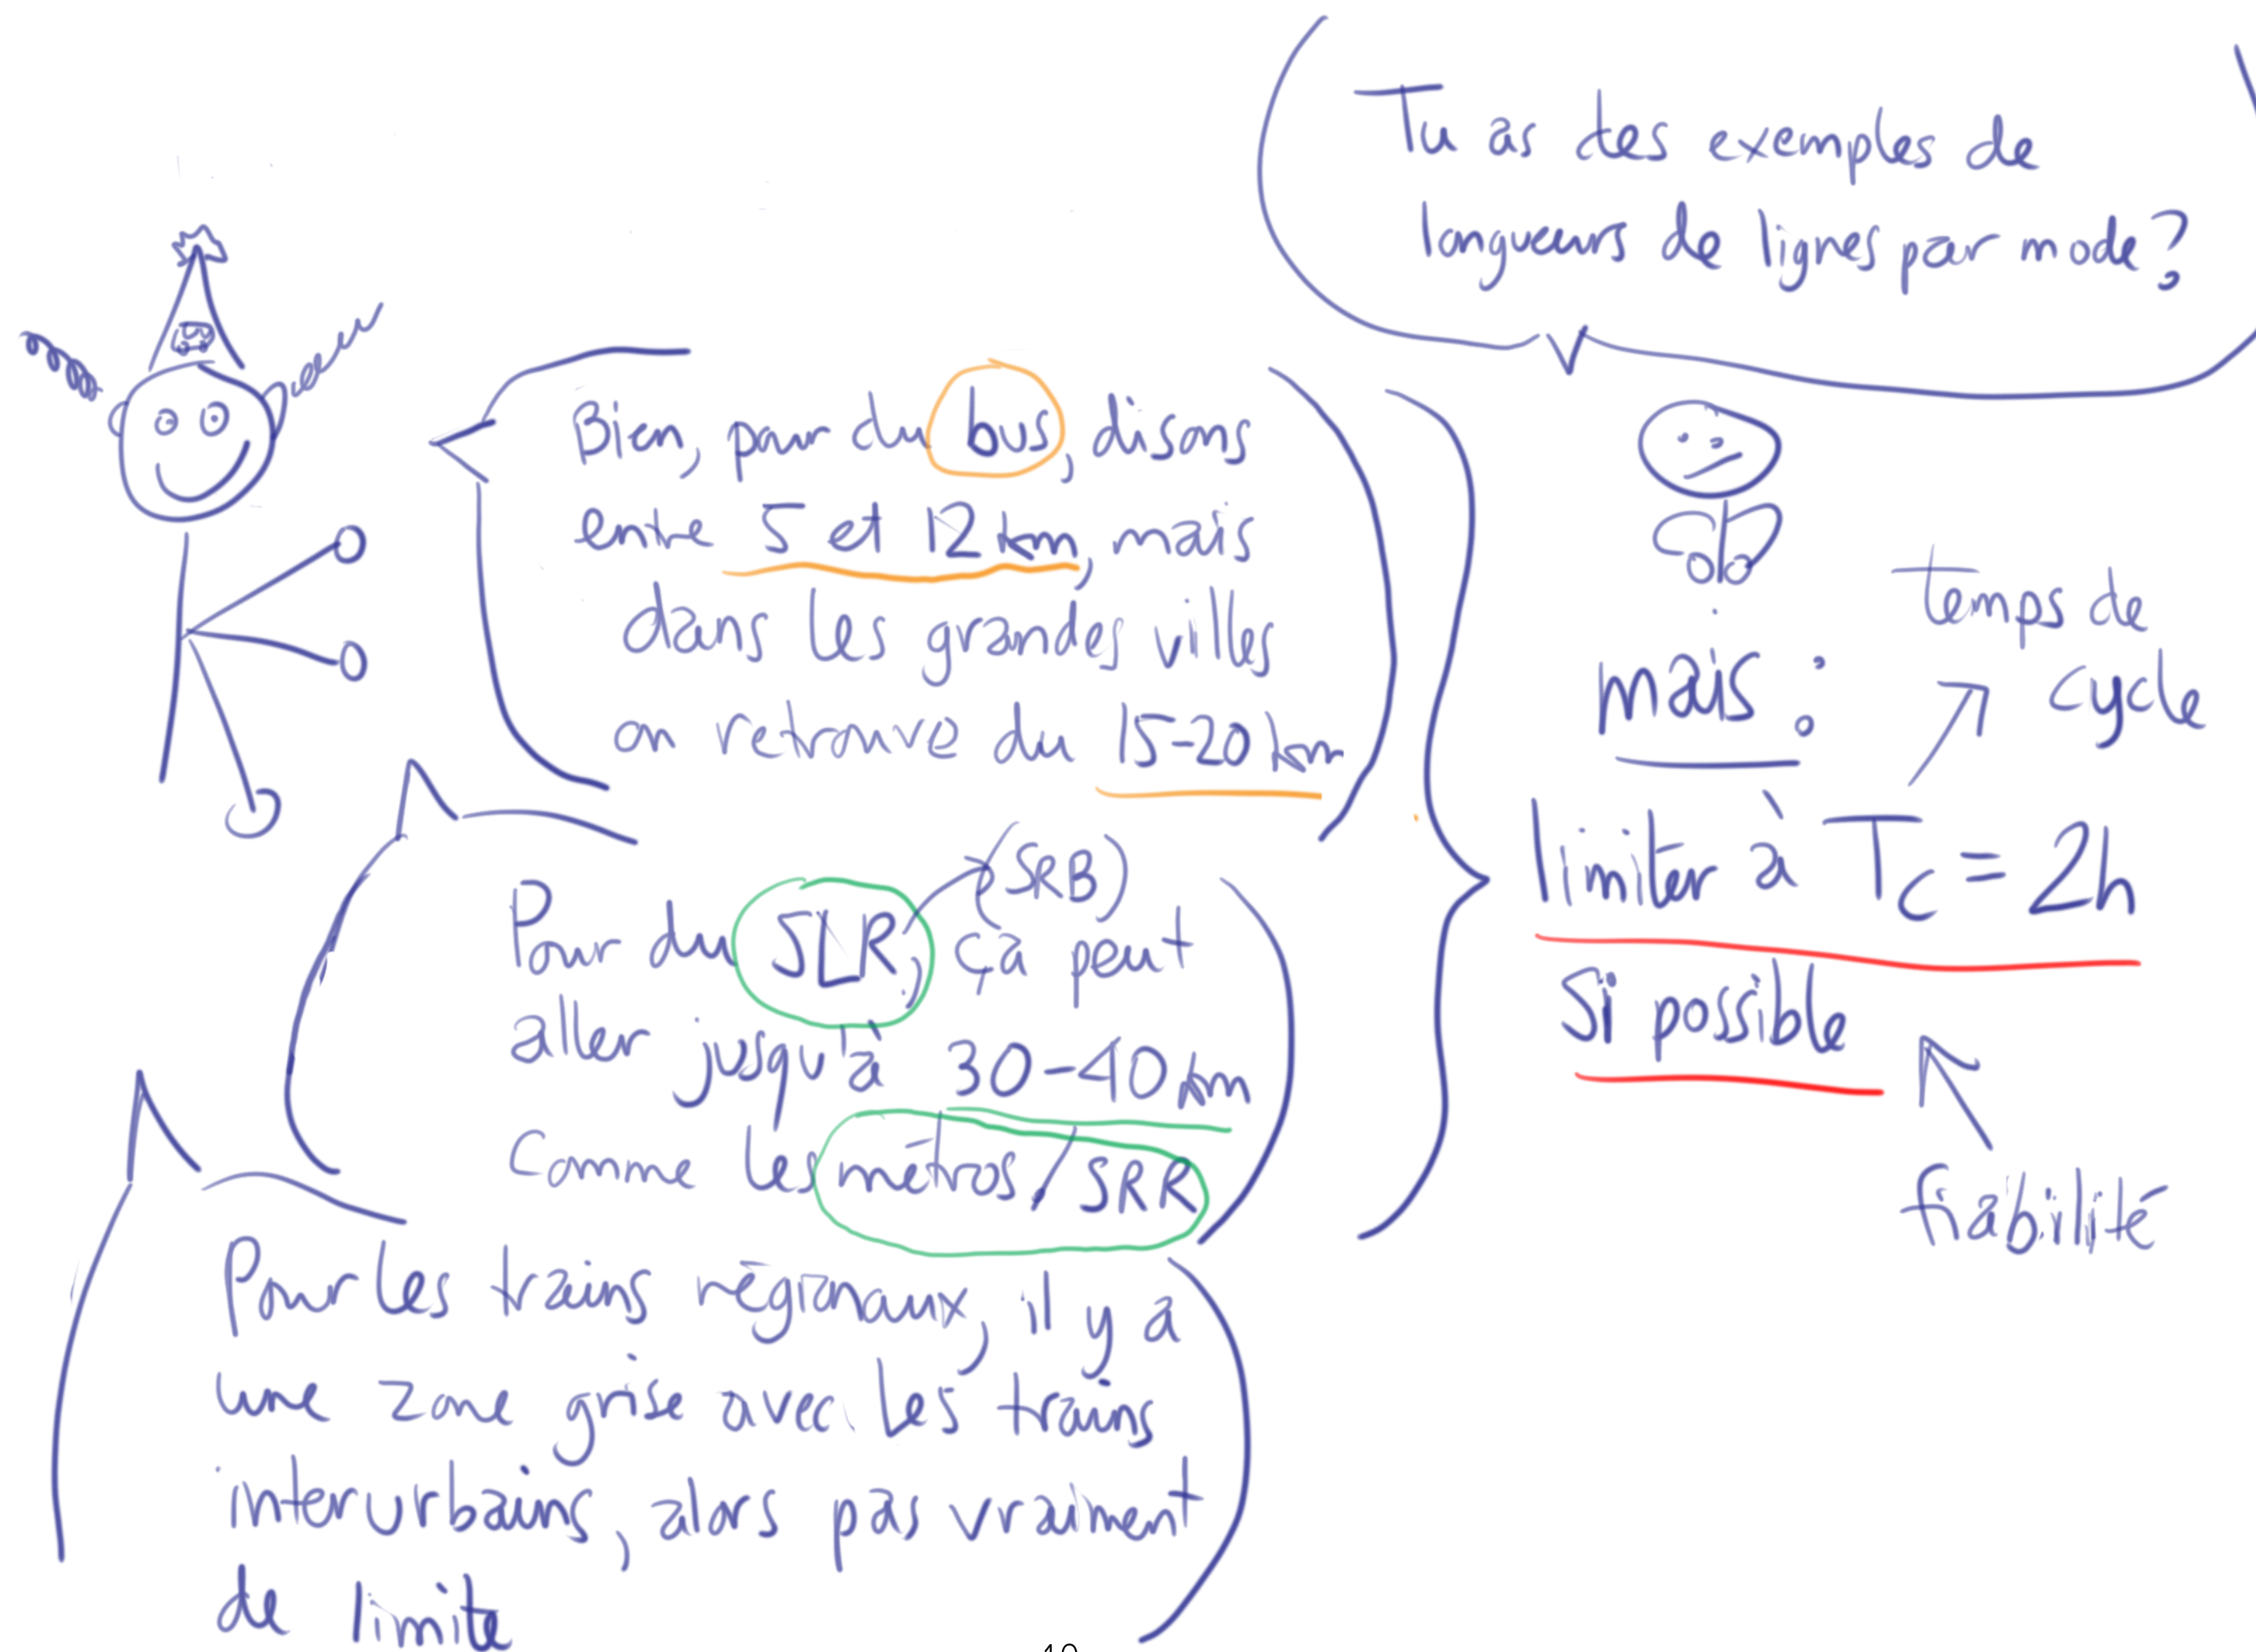 Tu as des exemples de
longueurs de lignes par mode?
Bien, pour du bus, disons
entre 5 et 12 km, mais
dans les grandes villes
on retrouve du 15-20 km
Pour du SLR, (SRB) ça peut
aller jusqu'à 30-40 km
Comme les métros / SRR
Pour les trains régionaux, il y a
une zone grise avec les trains
interurbains, alors pas vraiment
de limite
mais :
temps de
cycle
limiter à Tc = 2h
si possible
fiabilité
10